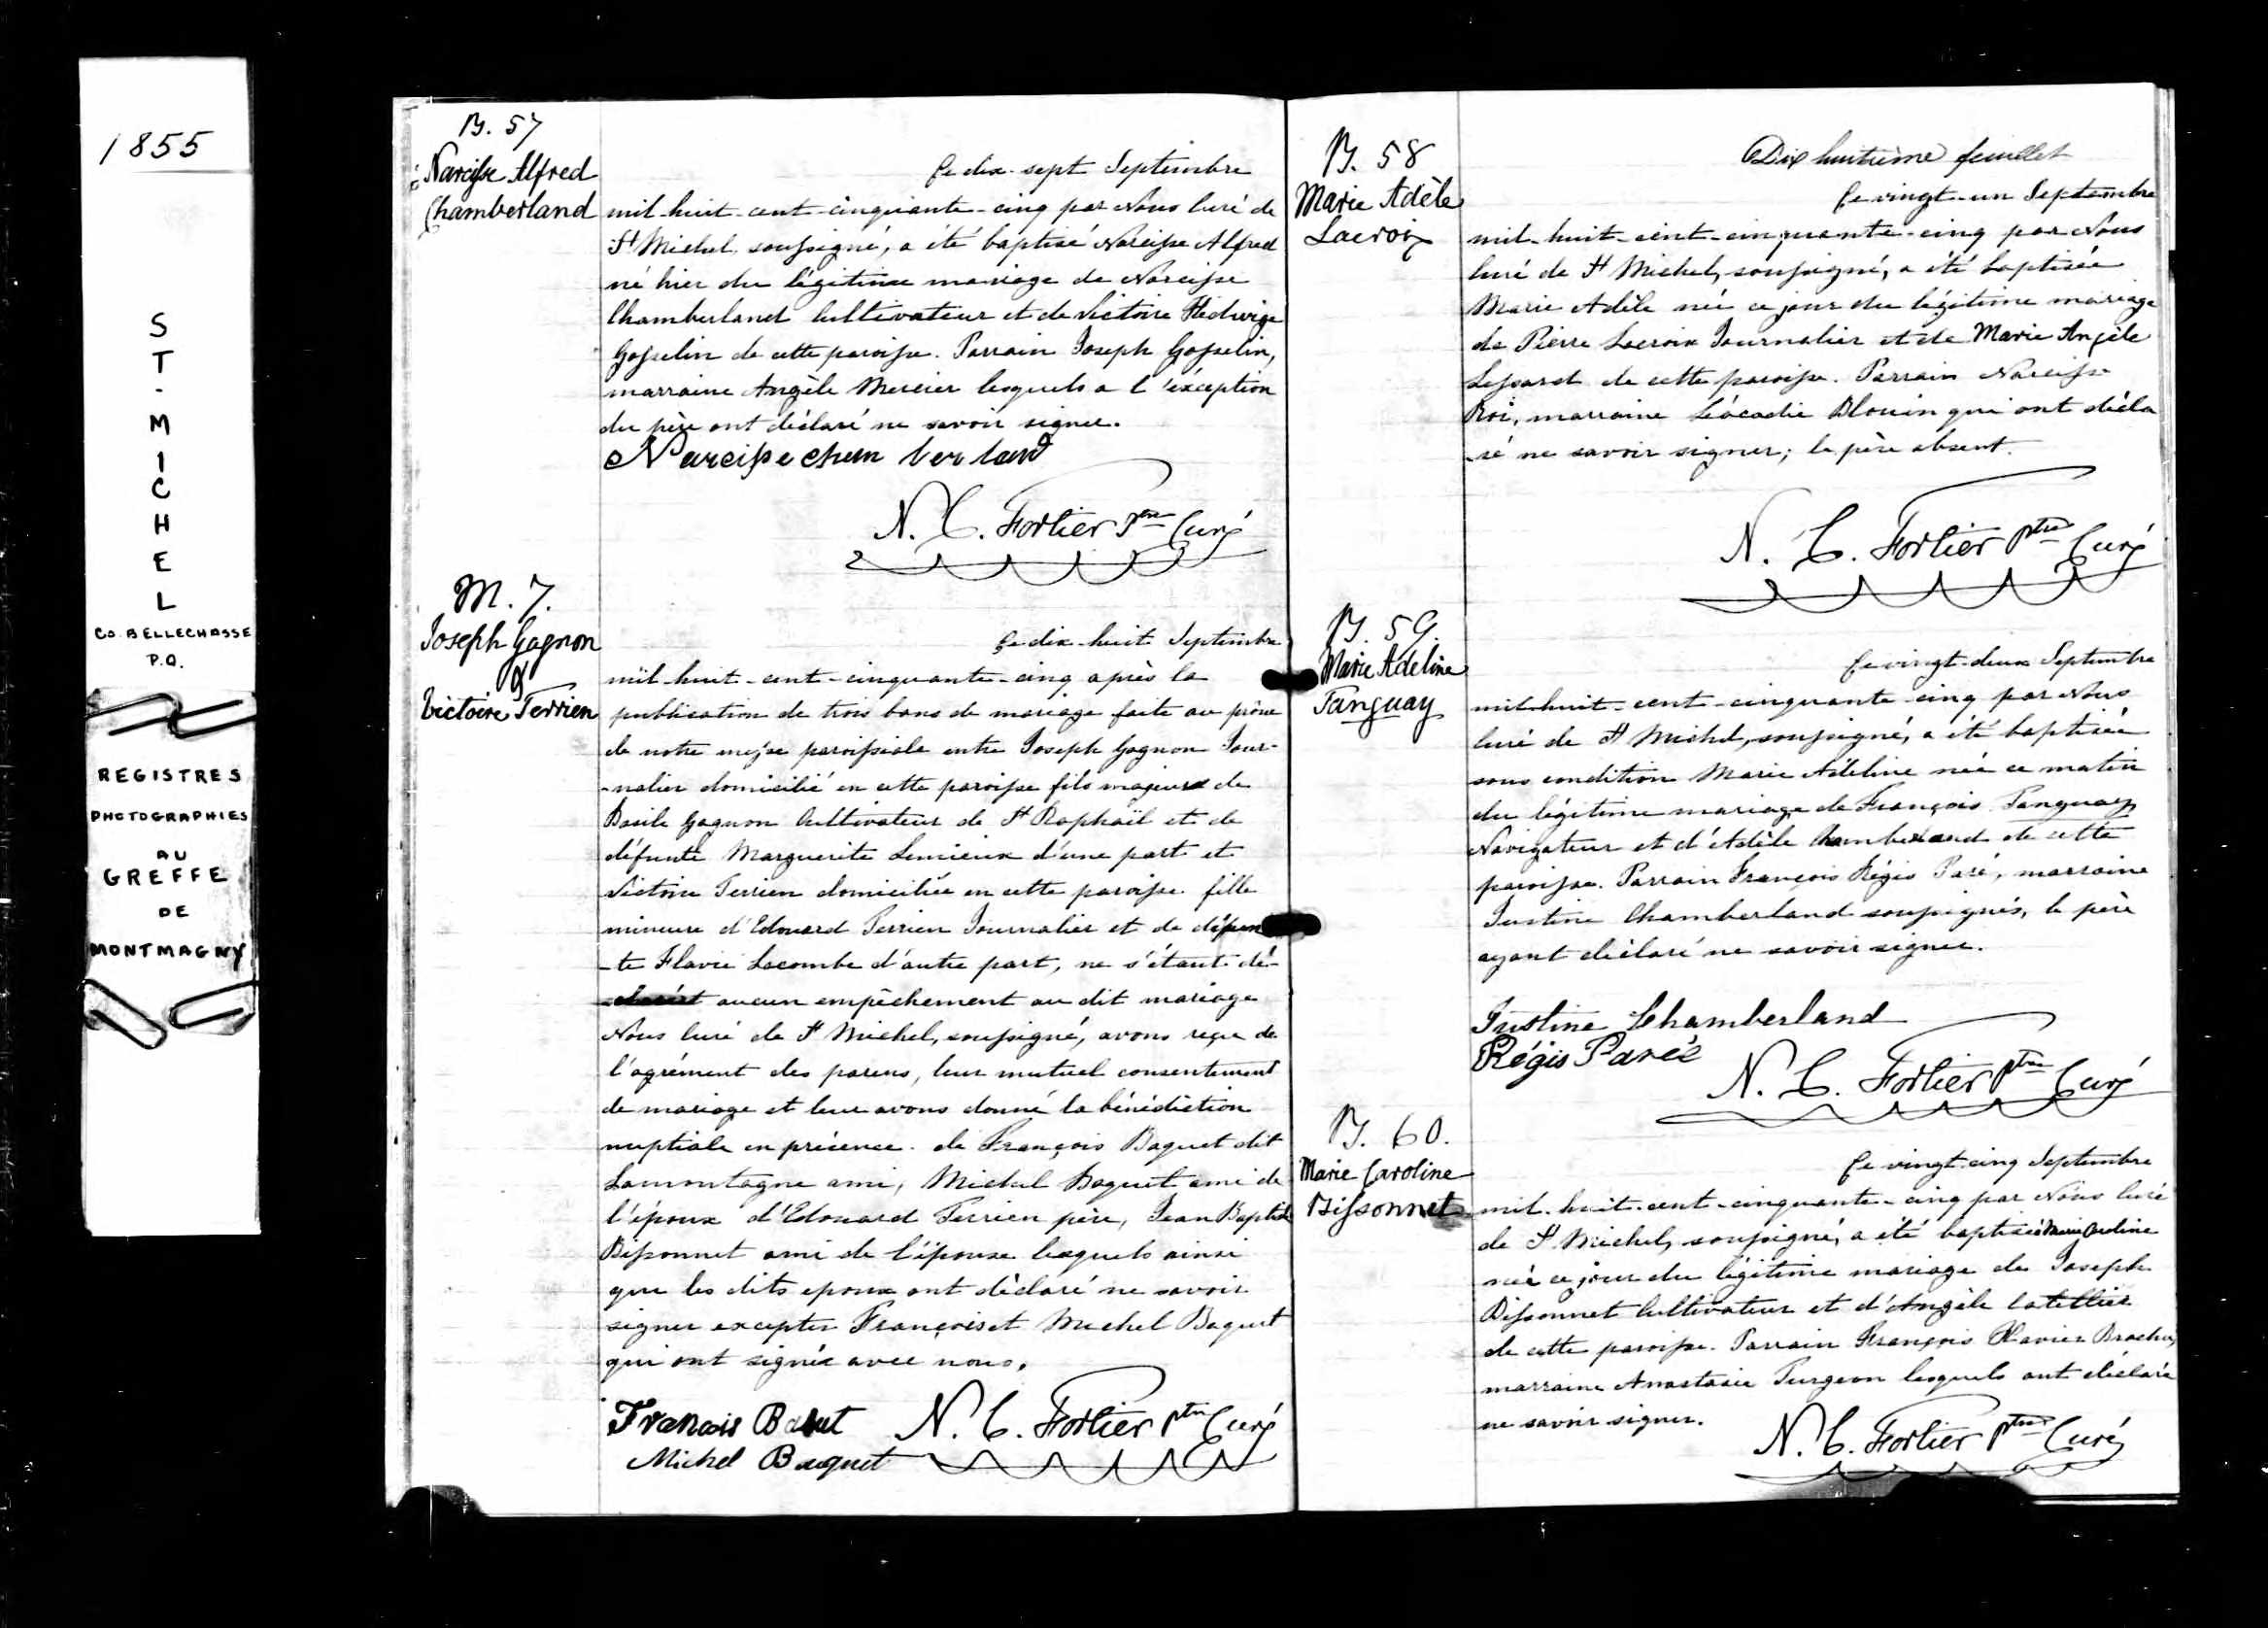 1855
ST-MICHEL
CO. BELLECHASSE
P.Q.
REGISTRES
PHOTOGRAPHIES
AU
GREFFE
DE
MONTMAGNY
B. 57
Narcisse Alfred
Chamberland
Ce dix-sept Septembre
mil-huit-cent-cinquante-cinq par Nous Curé de
St Michel, soussigné, a été baptisé Narcisse Alfred
né hier du légitime mariage de Narcisse
Chamberland Cultivateur et de Victoire Hedwige
Gosselin de cette paroisse. Parrain Joseph Gosselin,
marraine Angèle Mercier lesquels a l'éxception
du père ont déclaré ne savoir signer.
Narcisse chamberland
N. C. Fortier Ptre Curé
M. 7.
Joseph Gagnon
&
Victoire Terrien
Ce dix-huit Septembre
mil-huit-cent-cinquante-cinq après la
publication de trois bans de mariage faite au prône
de notre messe paroissiale entre Joseph Gagnon Jour-
-nalier domicilié en cette paroisse fils majeur de
Basile Gagnon Cultivateur de St Raphaël et de
défunte Marguerite Lemieux d'une part et
Victoire Terrien domiciliée en cette paroisse fille
mineure d'Edouard Terrien Journalier et de défun
-te Flavie Lacombe d'autre part, ne s'étant dé-
aucun empêchement au dit mariage
Nous Curé de St Michel, soussigné, avons reçu de
l'agrément des parens, leur mutuel consentement
de mariage et leur avons donné la bénédiction
nuptiale en présence de François Baquet dit
Lamontagne ami, Michel Baquet ami de
l'époux d'Edouard Terrien père, Jean Baptiste
Bissonnet ami de l'épouse lesquels ainsi
que les dits epoux ont déclaré ne savoir
signer excepter François et Michel Baquet
qui ont signés avec nous.
Francois Baket N. C. Fortier Ptre Curé
Michel Baquet
B. 58
Marie Adèle
Lacroix
Dix huitième feuillet
Ce vingt-un Septembre
mil-huit-cent-cinquante-cinq par Nous
Curé de St Michel, soussigné, a été baptisée
Marie Adèle née ce jour du légitime mariage
de Pierre Lacroix Journalier et de Marie Angèle
Lessard de cette paroisse. Parrain Narcisse
Roi, marraine Léocadie Blouin qui ont décla
-ré ne savoir signer; le père absent.
N. C. Fortier Ptre Curé
B. 59.
Marie Adeline
Tanguay
Ce vingt-deux Septembre
mil-huit-cent-cinquante-cinq par Nous
Curé de St Michel, soussigné, a été baptisée
sous condition Marie Adeline née ce matin
du légitime mariage de François Tanguay
Navigateur et d'Adèle Chamberland de cette
paroisse. Parrain François Régis Paré, marraine
Justine Chamberland soussignés, le père
ayant déclaré ne savoir signer.
Justine Chamberland
Régis Pareé
N. C. Fortier Ptre Curé
B. 60.
Marie Caroline
Bissonnet
Ce vingt-cinq Septembre
mil-huit-cent-cinquante-cinq par Nous Curé
de St Michel, soussigné, a été baptisée Marie Caroline
née ce jour du légitime mariage de Joseph
Bissonnet Cultivateur et d'Angèle Latellier
de cette paroisse. Parrain François Xavier Brochu,
marraine Anastasie Turgeon lesquels ont déclaré
ne savoir signer.
N. C. Fortier Ptre Curé